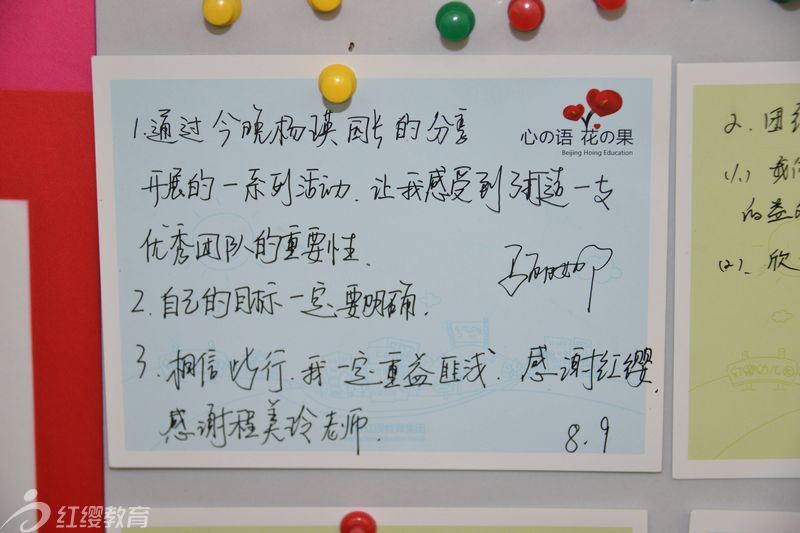 心の语 花の果
Beijing Hoing Education
1.通过今晚杨瑛园长的分享
开展的一系列活动.让我感受到打造一支
优秀团队的重要性.
2.自己的目标一定要明确.
3.相信此行.我一定重益匪浅.感谢红缨.
感谢程美玲老师.
8.9
2.团
(1.)
的益的
(2).欣
红缨教育